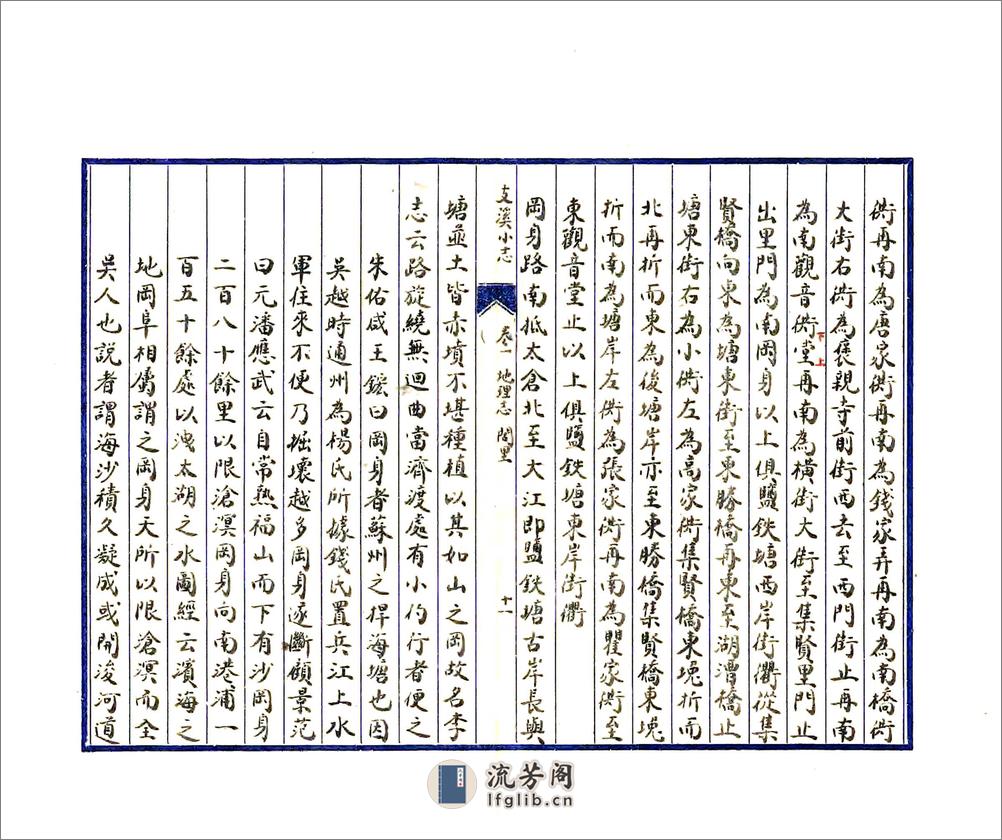 衖再南為唐家衖再南為錢家弄再南為南橋衖
大街右衖為褒親寺前街西去至西門街止再南
為南觀音衖堂再南為橫街大街至集賢里門止
下 上
出里門為南岡身以上俱鹽鉄塘西岸街衢從集
賢橋向東為塘東街至東勝橋再東至湖漕橋止
塘東街右為小衖左為高家衖集賢橋東堍折而
北再折而東為後塘岸亦至東勝橋集賢橋東堍
折而南為塘岸左衖為張家衖再南為瞿家衖至
東觀音堂止以上俱鹽鉄塘東岸街衢
岡身路南抵太倉北至大江即鹽鉄塘古岸長與
支溪小志 卷一 地理志 閭里 十一
塘並土皆赤墳不堪種植以其如山之岡故名李
志云路旋繞無迴曲當濟渡處有小彴行者便之
朱佑咸王鋐曰岡身者蘇州之捍海塘也因
吳越時通州為楊氏所據錢氏置兵江上水
軍往來不便乃堀壞越多岡身遂斷顧景范
曰元潘應武云自常熟福山而下有沙岡身
二百八十餘里以限滄溟岡身向南港浦一
百五十餘處以洩太湖之水圖經云濱海之
地岡阜相屬謂之岡身天所以限滄溟而全
吳人也説者謂海沙積久凝成或開浚河道
流芳阁
lfglib.cn